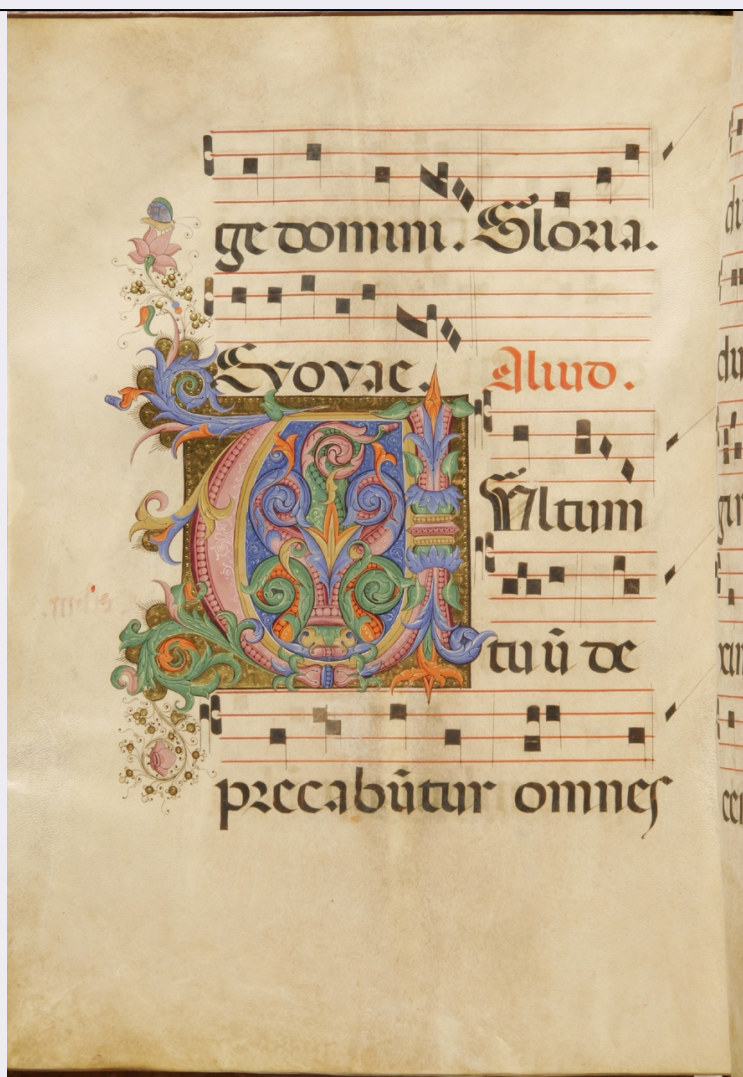 ge domini. Gloria.
Evovae. Aliud.
VUltum
tuū de
precabūtur omnes